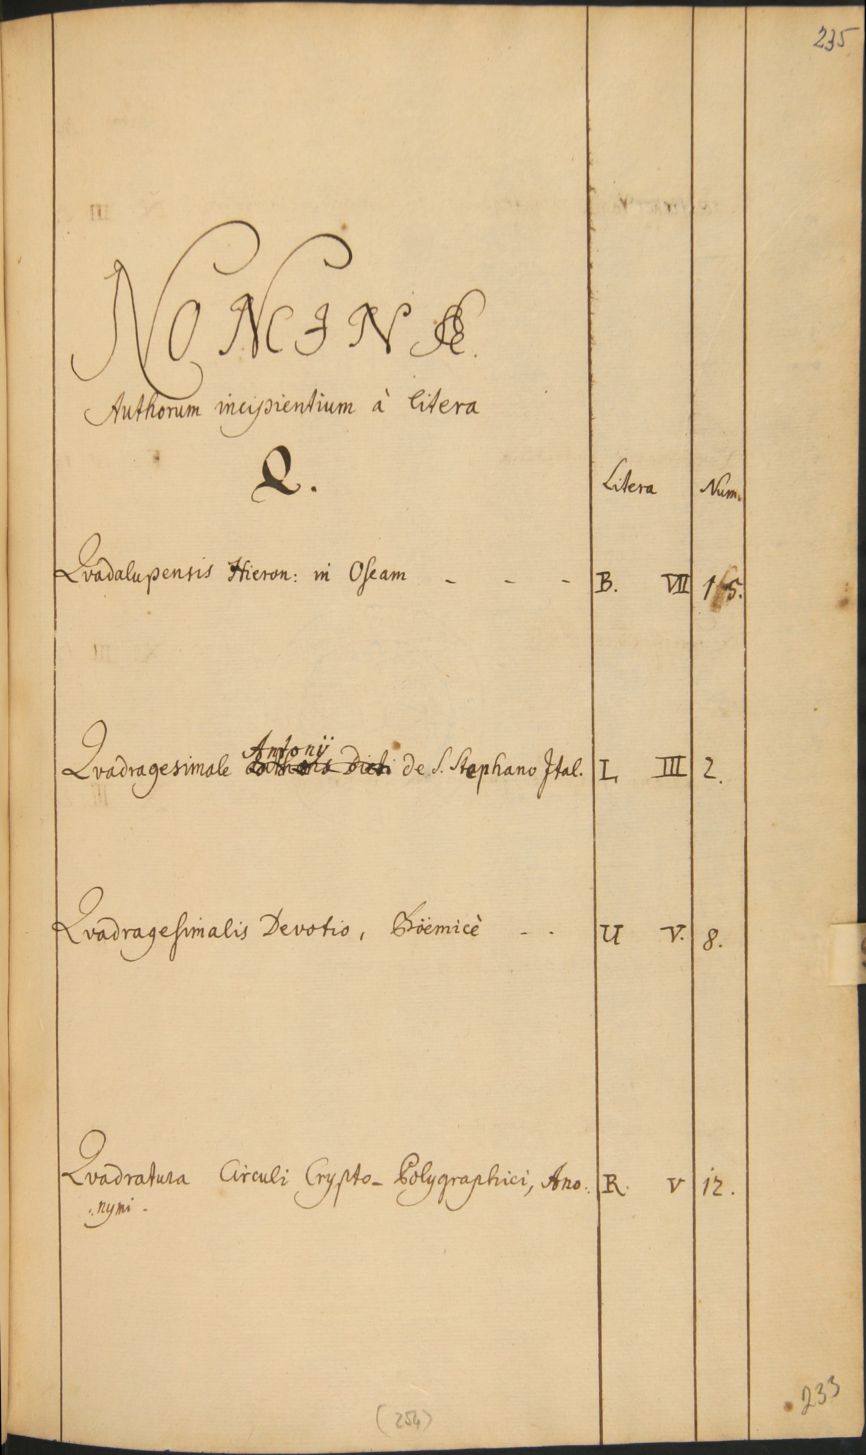 235
NOMINA
Authorum incipientium à litera
Q.
Litera Num.
Qvadalupensis Hieron: in Oseam - - - B. VII 15.
Antonij
Qvadragesimale de S. Stephano Ital. L III 2.
Qvadragesimalis Devotio, Böemicè - . U V. 8.
Qvadratura Circuli Crypto-Polygraphici, Ano: R. V 12.
.nymi -
(254)
233